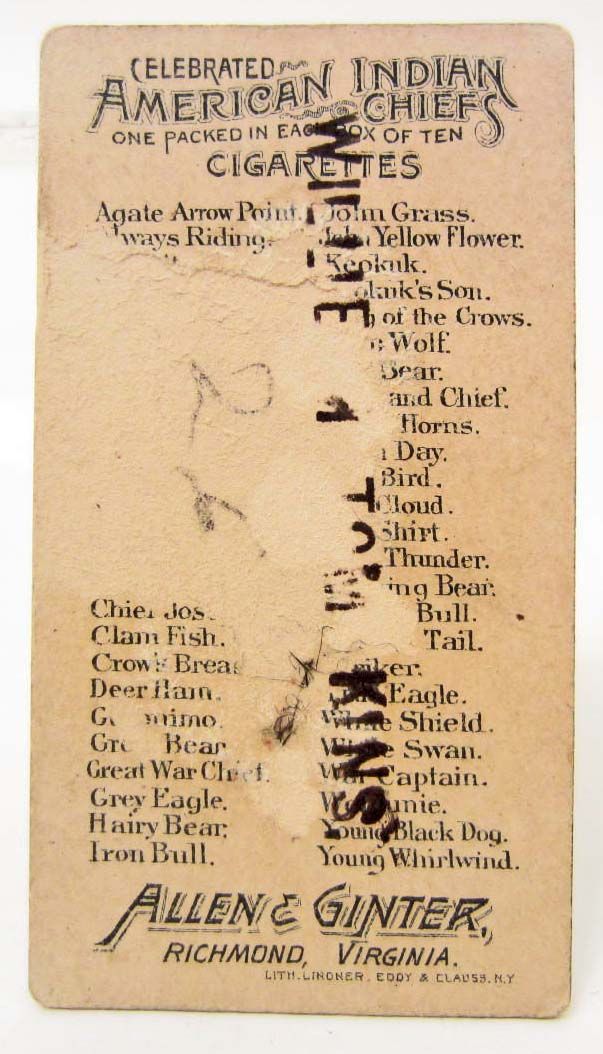 CELEBRATED
AMERICAN INDIAN
CHIEFS
ONE PACKED IN EACH BOX OF TEN
CIGARETTES
Agate Arrow Point.
lways Riding.
Chief Jos
Clam Fish.
Crow's Breas
Deer Ham.
G nimo.
Gre Bear
Great War Chief.
Grey Eagle.
Hairy Bear.
Iron Bull.
John Grass.
John Yellow Flower.
Keokuk.
okuk's Son.
g of the Crows.
Wolf.
Bear.
and Chief.
Horns.
Day.
Bird.
Cloud.
Shirt.
Thunder.
ing Bear.
Bull.
Tail.
riker.
Eagle.
White Shield.
White Swan.
War Captain.
W unie.
Young Black Dog.
Young Whirlwind.
ALLEN & GINTER,
RICHMOND, VIRGINIA.
LITH. LINDNER, EDDY & CLAUSS. N.Y
WILLIE A TOMKINS
2